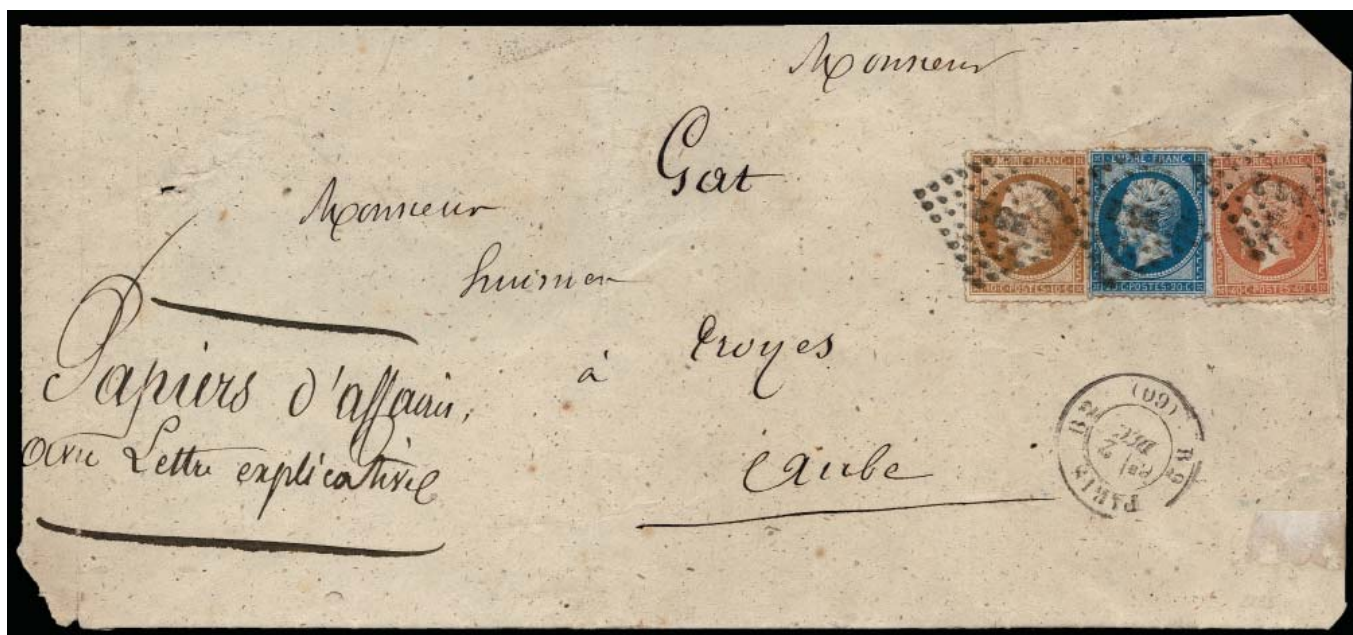 Monsieur
Gat
Monsieur
huissier
à Troyes
Aube
Papiers d'affaires,
avec Lettre explicative
EMPIRE FRANC
EMPIRE FRANC
EMPIRE FRANC
10 C POSTES 10 C
20 C POSTES 20 C
40 C POSTES 40 C
PARIS
(60)